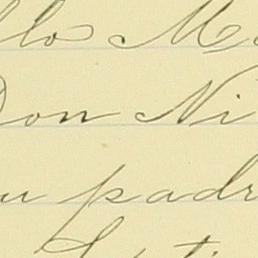 llos Me
Don Ni
u padr